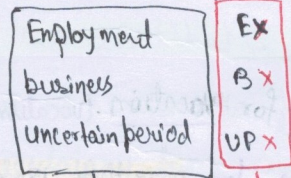 Employment Ex
business B x
uncertain period UP x